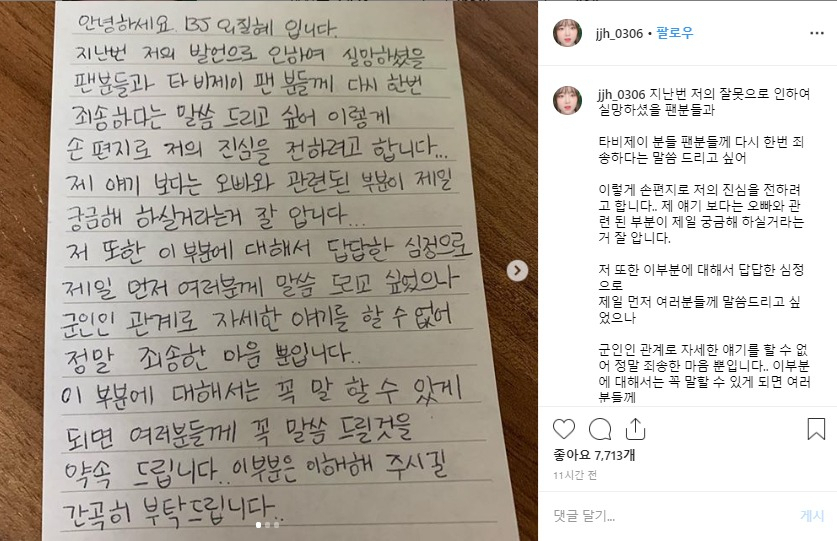 안녕하세요. BJ 외질혜 입니다.
지난번 저의 발언으로 인하여 실망하셨을
팬분들과 타 비제이 팬 분들께 다시 한번
죄송하다는 말씀 드리고 싶어 이렇게
손 편지로 저의 진심을 전하려고 합니다...
제 얘기 보다는 오빠와 관련된 부분이 제일
궁금해 하실거라는거 잘 압니다...
저 또한 이 부분에 대해서 답답한 심정으로
제일 먼저 여러분께 말씀 드리고 싶었으나
군인인 관계로 자세한 얘기를 할 수 없어
정말 죄송한 마음 뿐입니다..
이 부분에 대해서는 꼭 말 할 수 있게
되면 여러분들께 꼭 말씀 드릴것을
약속 드립니다..이부분은 이해해 주시길
간곡히 부탁드립니다..
jjh_0306 • 팔로우
jjh_0306 지난번 저의 잘못으로 인하여
실망하셨을 팬분들과
타비제이 분들 팬분들께 다시 한번 죄
송하다는 말씀 드리고 싶어
이렇게 손편지로 저의 진심을 전하려
고 합니다.. 제 얘기 보다는 오빠와 관
련 된 부분이 제일 궁금해 하실거라는
거 잘 압니다.
저 또한 이부분에 대해서 답답한 심정
으로
제일 먼저 여러분들께 말씀드리고 싶
었으나
군인인 관계로 자세한 얘기를 할 수 없
어 정말 죄송한 마음 뿐입니다.. 이부분
에 대해서는 꼭 말할 수 있게 되면 여러
분들께
좋아요 7,713개
11시간 전
댓글 달기...
게시